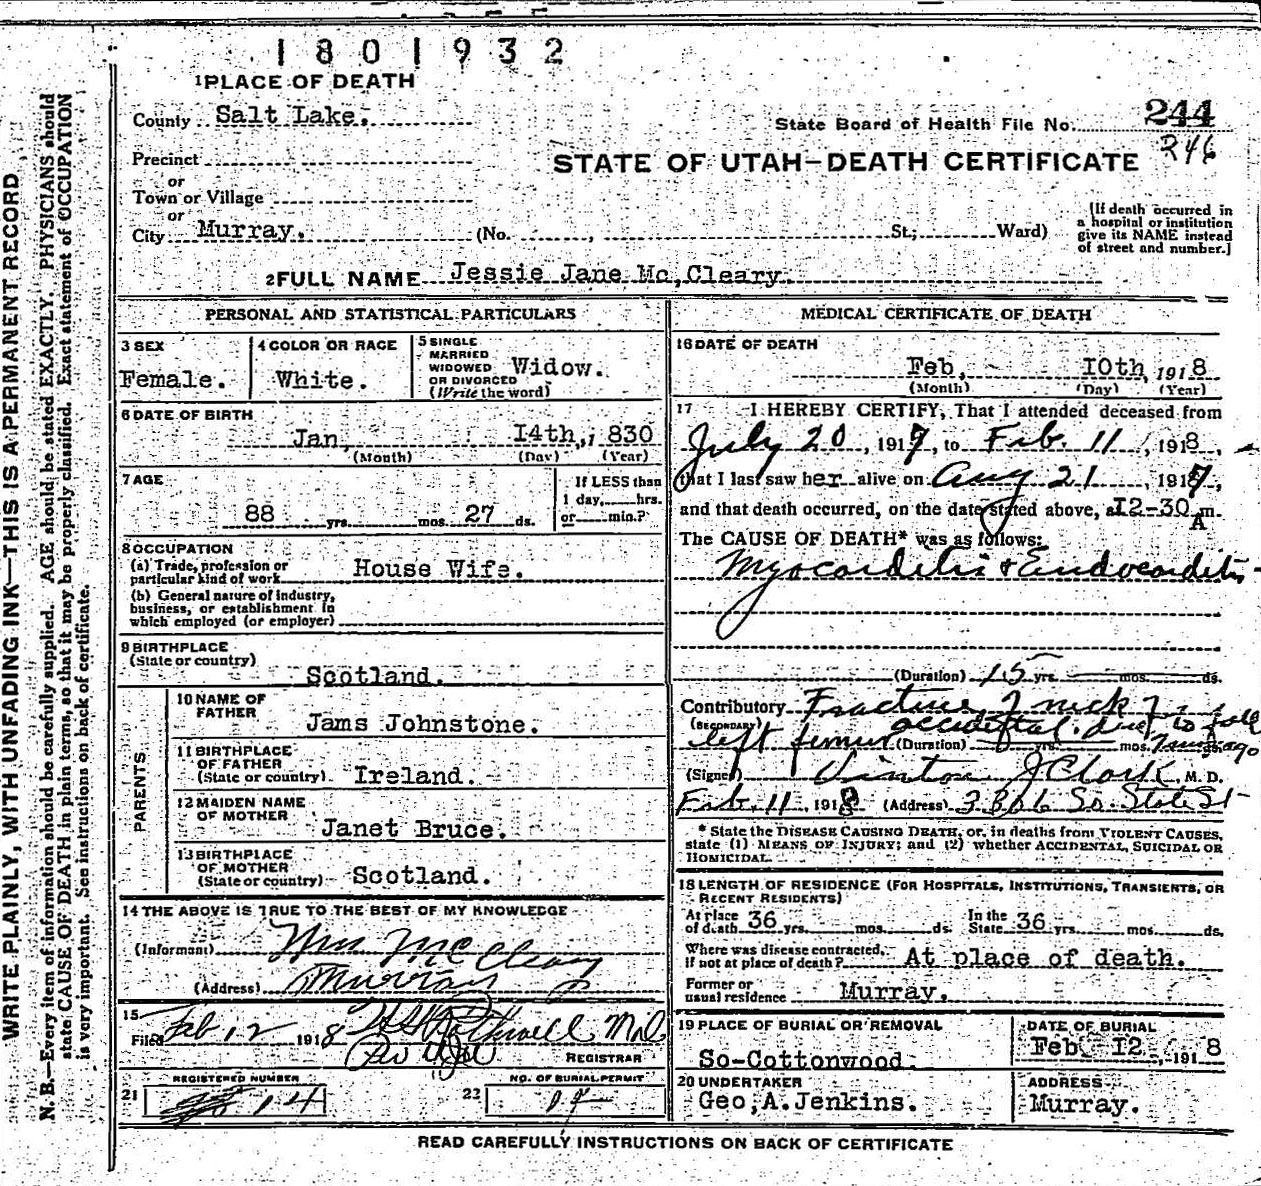 1801932
1 PLACE OF DEATH
County Salt Lake.
State Board of Health File No. 244
246
Precinct
STATE OF UTAH—DEATH CERTIFICATE
or
Town or Village
or
City Murray. (No. , St.; Ward)
[If death occurred in
a hospital or institution
give its NAME instead
of street and number.]
2 FULL NAME Jessie Jane Mc,Cleary.
PERSONAL AND STATISTICAL PARTICULARS
3 SEX
Female.
4 COLOR OR RACE
White.
5 SINGLE
MARRIED
WIDOWED
OR DIVORCED
(Write the word)
Widow.
6 DATE OF BIRTH
Jan, I4th,, 1 830
(Month) (Day) (Year)
7 AGE
88 yrs. mos. 27 ds.
If LESS than
1 day, hrs.
or min.?
8 OCCUPATION
(a) Trade, profession or
particular kind of work House Wife.
(b) General nature of industry,
business, or establishment in
which employed (or employer)
9 BIRTHPLACE
(State or country)
Scotland.
PARENTS
10 NAME OF
FATHER
Jams Johnstone.
11 BIRTHPLACE
OF FATHER
(State or country) Ireland.
12 MAIDEN NAME
OF MOTHER
Janet Bruce.
13 BIRTHPLACE
OF MOTHER
(State or country) Scotland.
14 THE ABOVE IS TRUE TO THE BEST OF MY KNOWLEDGE
(Informant) Wm McCleary
(Address) Murray
15
Filed Feb 12 1918
REGISTRAR
REGISTERED NUMBER
21 14
NO. OF BURIAL PERMIT
22
MEDICAL CERTIFICATE OF DEATH
16 DATE OF DEATH
Feb, I0th, 1918
(Month) (Day) (Year)
17 I HEREBY CERTIFY, That I attended deceased from
July 20, 1917, to Feb. 11, 1918,
that I last saw her alive on Aug 21, 1917,
and that death occurred, on the date stated above, at I2-30 A m.
The CAUSE OF DEATH* was as follows:
Myocarditis & Endocarditis
(Duration) 15 yrs. mos. ds.
Contributory Fracture of neck of
(SECONDARY) accidental due to fall
left femur (Duration) yrs. mos. ago
(Signed) Vinton J Clark, M. D.
Feb. 11 1918 (Address) 3806 So. State St
* State the DISEASE CAUSING DEATH, or, in deaths from VIOLENT CAUSES,
state (1) MEANS OF INJURY; and (2) whether ACCIDENTAL, SUICIDAL OR
HOMICIDAL.
18 LENGTH OF RESIDENCE (FOR HOSPITALS, INSTITUTIONS, TRANSIENTS, OR
RECENT RESIDENTS)
At place
of death 36 yrs. mos. ds.
In the
State 36 yrs. mos. ds.
Where was disease contracted,
if not at place of death? At place of death.
Former or
usual residence Murray.
19 PLACE OF BURIAL OR REMOVAL
So-Cottonwood.
DATE OF BURIAL
Feb I2, 1918
20 UNDERTAKER
Geo,A.Jenkins.
ADDRESS
Murray.
READ CAREFULLY INSTRUCTIONS ON BACK OF CERTIFICATE
WRITE PLAINLY, WITH UNFADING INK—THIS IS A PERMANENT RECORD
N. B.—Every item of information should be carefully supplied. AGE should be stated EXACTLY. PHYSICIANS should
state CAUSE OF DEATH in plain terms, so that it may be properly classified. Exact statement of OCCUPATION
is very important. See instructions on back of certificate.